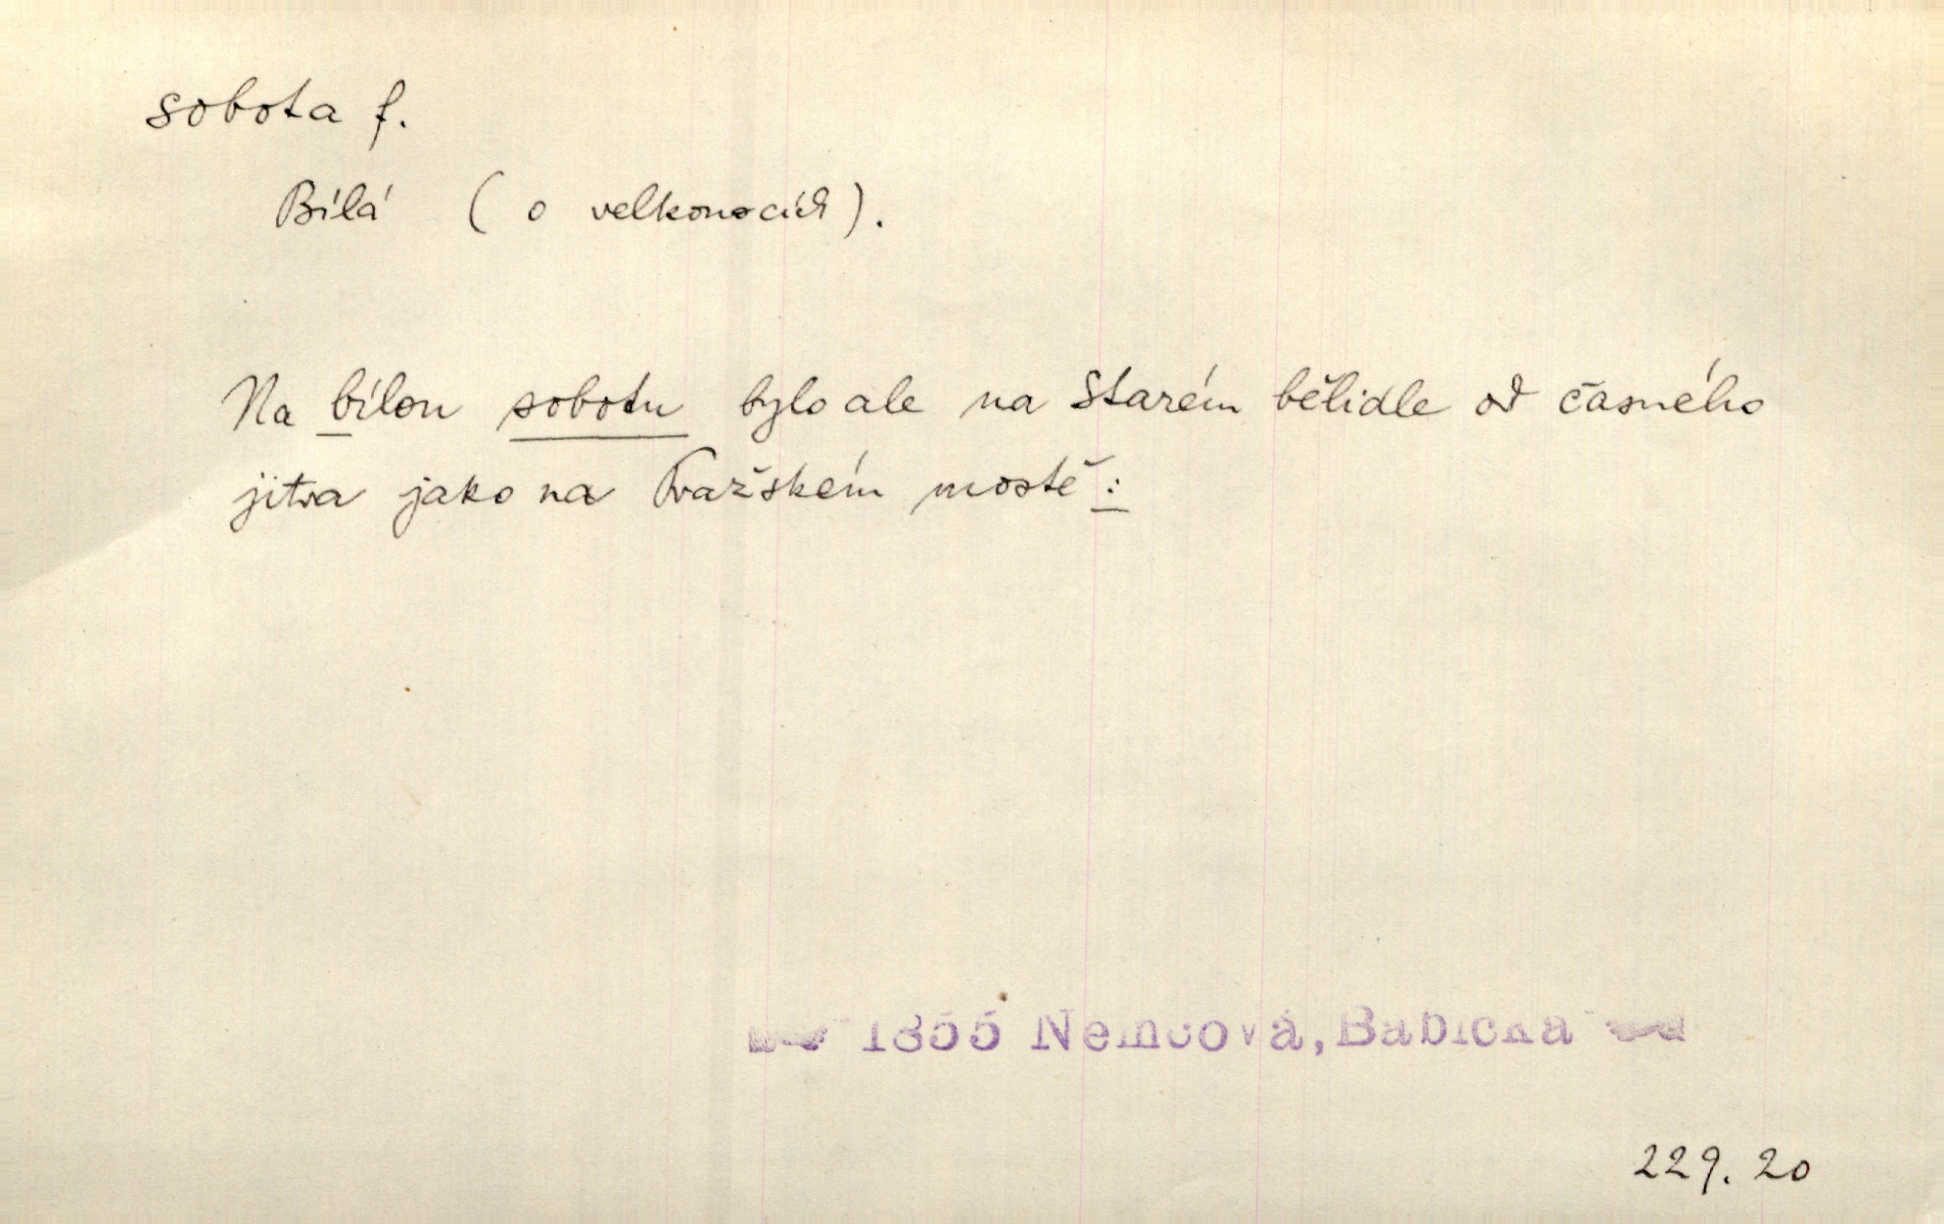 sobota f.
Bílá ( o velkonocích ).
Na bílou sobotu bylo ale na Starém bělidle od časného
jitra jako na Pražském mostě :
1855 Němcová, Babička
229. 20